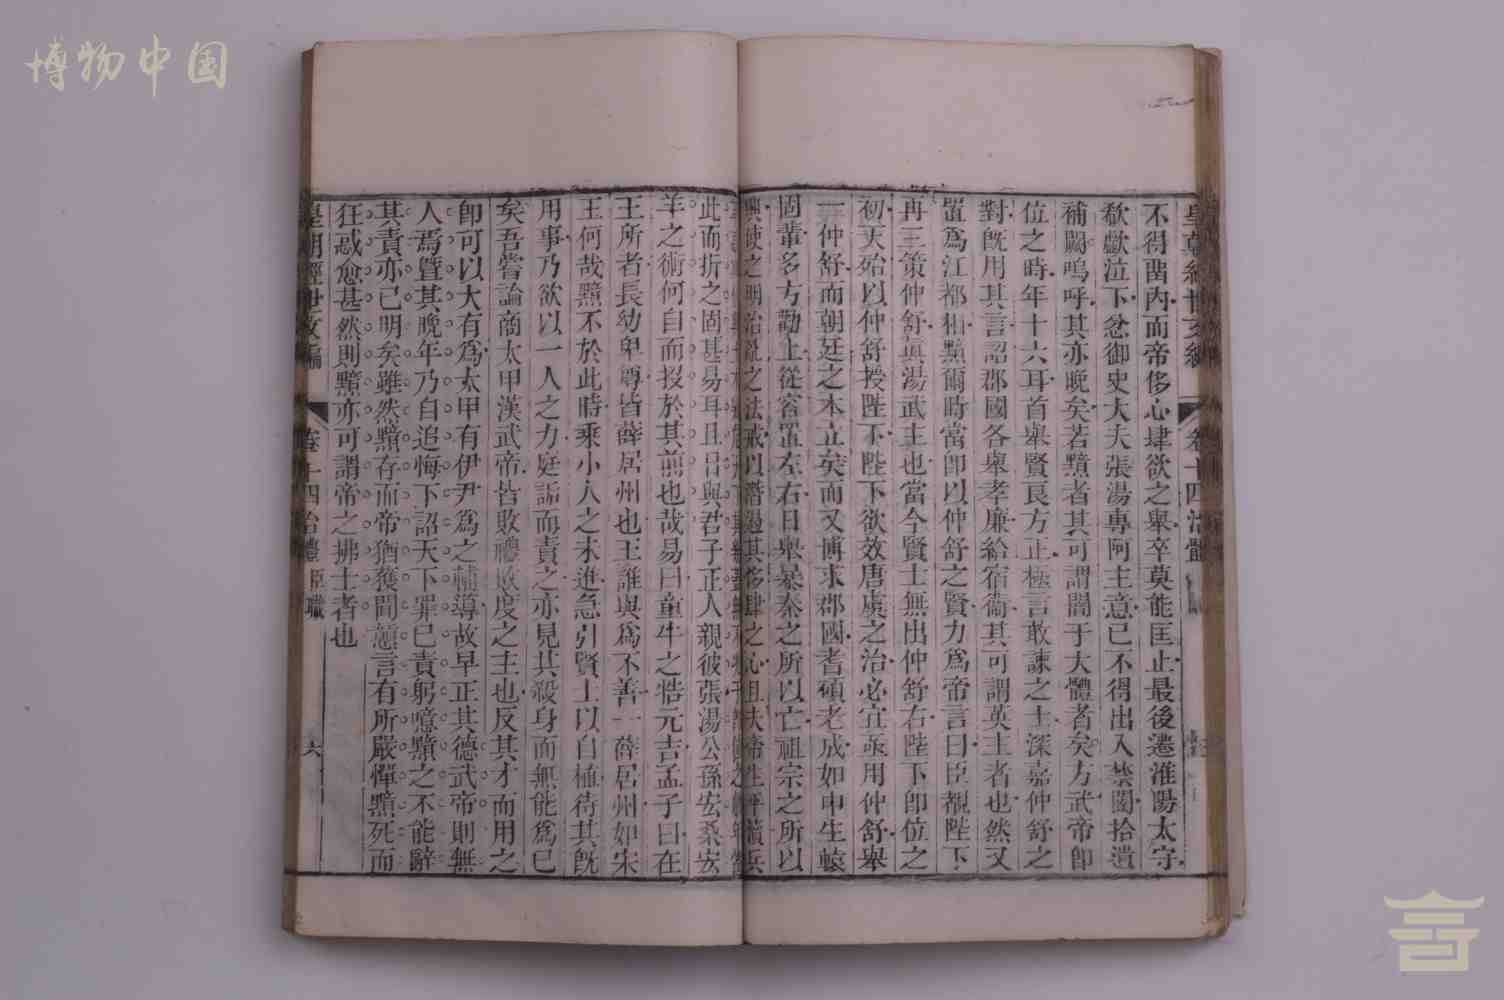 博物中国
不得畱內而帝侈心肆欲之舉卒莫能匡止最後遷淮陽太守
欷歔泣下忿御史大夫張湯專阿主意已不得出入禁闥拾遺
補闕嗚呼其亦晚矣若黯者其可謂闇于大體者矣方武帝卽
位之時年十六耳首舉賢良方正極言敢諫之士深嘉仲舒之
對旣用其言詔郡國各舉孝廉給宿衞其可謂英主者也然又
置爲江都相黯爾時當卽以仲舒之賢力爲帝言曰臣覩陛下
再三策仲舒眞湯武主也當今賢士無出仲舒右陛下卽位之
初天殆以仲舒授陛下陛下欲效唐虞之治必宜亟用仲舒舉
一仲舒而朝廷之本立矣而又博求郡國耆碩老成如申生轅
固輩多方勸上從容置左右日舉暴秦之所以亡祖宗之所以
興使之明治亂之法戒以潛遏其侈肆之心且夫帝生平黷兵
此而折之固甚易耳且日與君子正人親彼張湯公孫宏桑宏
羊之術何自而投於其前也哉易曰童牛之牿元吉孟子曰在
王所者長幼卑尊皆薛居州也王誰與爲不善一薛居州如宋
王何哉黯不於此時乘小人之未進急引賢士以自植待其旣
用事乃欲以一人之力庭詬而責之亦見其殺身而無能爲已
矣吾嘗論商太甲漢武帝皆敗禮敗度之主也反其才而用之
卽可以大有爲太甲有伊尹爲之輔導故早正其德武帝則無
人焉曁其晚年乃自追悔下詔天下罪已責躬噫黯之不能辭
其責亦已明矣雖然黯存而帝猶獲聞戇言有所嚴憚黯死而
狂惑愈甚然則黯亦可謂帝之拂士者也
皇朝經世文編 卷十四治體 臣職 六